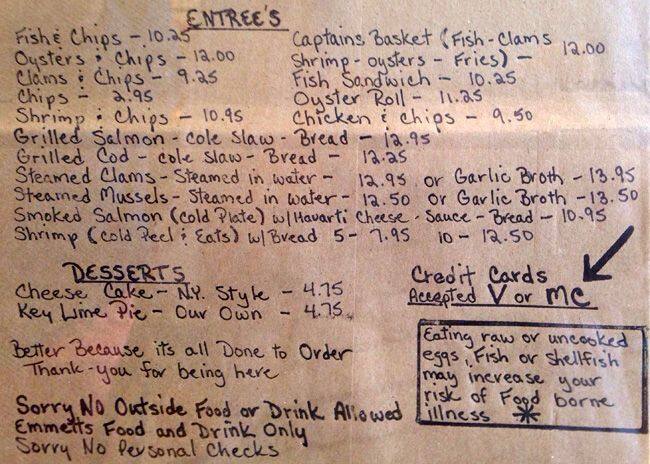 ENTREE'S
Fish & Chips - 10.25
Oysters & Chips - 12.00
Clams & Chips - 9.25
Chips - 2.95
Shrimp & Chips - 10.95
Captains Basket (Fish-Clams
Shrimp - oysters - Fries) - 12.00
Fish Sandwich - 10.25
Oyster Roll - 11.25
Chicken & Chips - 9.50
Grilled Salmon - cole slaw - Bread - 12.95
Grilled Cod - cole slaw - Bread - 12.25
Steamed Clams - Steamed in water - 12.95 or Garlic Broth - 13.95
Steamed Mussels - Steamed in water - 12.50 or Garlic Broth - 13.50
Smoked Salmon (cold Plate) w/Havarti Cheese - Sauce - Bread - 10.95
Shrimp (cold Peel & Eats) w/Bread 5 - 7.95 10 - 12.50
DESSERTS
Cheese Cake - N.Y. Style - 4.75
Key Lime Pie - Our Own - 4.75
Better Because its all Done to Order
Thank-you for being here
Sorry No Outside Food or Drink Allowed
Emmetts Food and Drink Only
Sorry No Personal Checks
Credit Cards
Accepted V or MC
Eating raw or uncooked
eggs, Fish or shellfish
may increase your
risk of Food borne
illness *